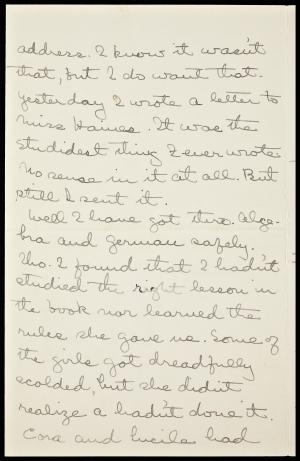 address. I know it wasn't
that, but I do want that.
Yesterday I wrote a letter to
Miss Haines. It was the
studidest thing I ever wrote.
No sense in it at all. But
still I sent it.
Well I have got thro. Alge-
bra and german safely.
Tho. I found that I hadn't
studied the right lesson in
the book nor learned the
rules she gave us. Some of
the girls got dreadfully
scolded, but she didn't
realize I hadn't done it.
Cora and Lucile had